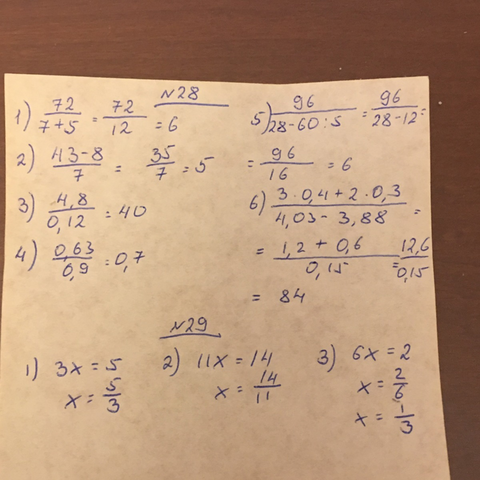 №28
1) 72/(7+5) = 72/12 = 6
2) (43-8)/7 = 35/7 = 5
3) 4,8/0,12 = 40
4) 0,63/0,9 = 0,7
5) 96/(28-60:5) = 96/(28-12) =
= 96/16 = 6
6) (3·0,4+2·0,3)/(4,03-3,88) =
= (1,2+0,6)/0,15 = 12,6/0,15
= 84
№29
1) 3x = 5
x = 5/3
2) 11x = 14
x = 14/11
3) 6x = 2
x = 2/6
x = 1/3